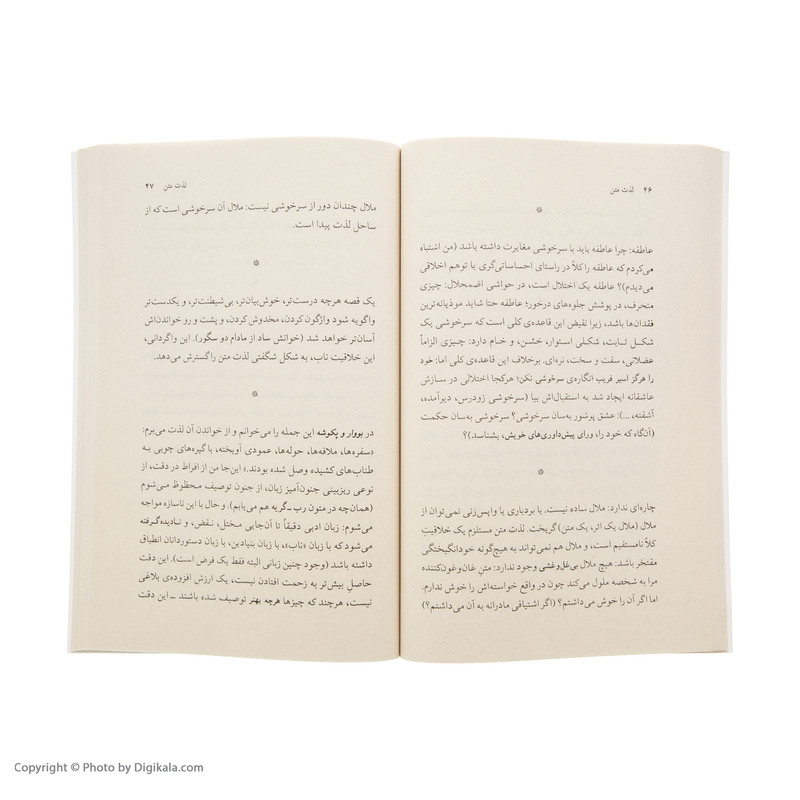 ۴۶ لذت متن
*
عاطفه: چرا عاطفه باید با سرخوشی مغایرت داشته باشد (من اشتباه
می‌کردم که عاطفه را کلاً در راستای احساساتی‌گری یا توهم اخلاقی
می‌دیدم)؟ عاطفه یک اختلال است، در حواشی اضمحلال: چیزی
منحرف، در پوشش جلوه‌های درخور؛ عاطفه حتا شاید موذیانه‌ترین
فقدان‌ها باشد، زیرا نقیض این قاعده‌ی کلی است که سرخوشی یک
شکل ثابت، شکلی استوار، خشن، و خام دارد: چیزی الزاماً
عضلاتی، سفت و سخت، نره‌ای. برخلاف این قاعده‌ی کلی اما: خود
را هرگز اسیر فریب انگاره‌ی سرخوشی نکن؛ هرکجا اختلالی در سازش
عاشقانه ایجاد شد به استقبال‌اش بیا (سرخوشی زودرس، دیرآمده،
آشفته، ...): عشق پرشور به‌سان سرخوشی؟ سرخوشی به‌سان حکمت
(آن‌گاه که خود را، ورای پیش‌داوری‌های خویش، بشناسد)؟
*
چاره‌ای ندارد: ملال ساده نیست. با بردباری یا واپس‌زنی نمی‌توان از
ملال (ملال یک اثر، یک متن) گریخت. لذت متن مستلزم یک خلاقیتِ
کلاً نامستقیم است، و ملال هم نمی‌تواند به هیچ‌گونه خودانگیختگی
مفتخر باشد: هیچ ملال بی‌غل‌وغشی وجود ندارد: متنِ غان‌وغون‌کننده
مرا به شخصه ملول می‌کند چون در واقع خواسته‌اش را خوش ندارم.
اما اگر آن را خوش می‌داشتم؟ (اگر اشتیاقی مادرانه به آن می‌داشتم؟)
لذت متن ۴۷
ملال چندان دور از سرخوشی نیست: ملال آن سرخوشی است که از
ساحل لذت پیدا است.
*
یک قصه هرچه درست‌تر، خوش‌بیان‌تر، بی‌شیطنت‌تر، و یکدست‌تر
واگویه شود واژگون کردن، مخدوش کردن، و پشت و رو خواندن‌اش
آسان‌تر خواهد شد (خوانش ساد از مادام دو سگور). این واگردانی،
این خلاقیت ناب، به شکل شگفتی لذت متن را گسترش می‌دهد.
*
در بووار و پکوشه این جمله را می‌خوانم و از خواندن آن لذت می‌برم:
«سفره‌ها، ملافه‌ها، حوله‌ها، عمودی آویخته، با گیره‌های چوبی به
طناب‌های کشیده وصل شده بودند.» این‌جا من از افراط در دقت، از
نوعی ریزبینی جنون‌آمیز زبان، از جنون توصیف محظوظ می‌شوم
(همان‌چه در متون رب ـ گریه هم می‌یابم). و حال با این ناسازه مواجه
می‌شوم: زبان ادبی دقیقاً تا آن‌جایی مختل، نقض، و نادیده گرفته
می‌شود که با زبان «ناب»، با زبان بنیادین، با زبان دستوردانان انطباق
داشته باشد (وجود چنین زبانی البته فقط یک فرض است). این دقت
حاصلِ بیش‌تر به زحمت افتادن نیست، یک ارزش افزوده‌ی بلاغی
نیست، هرچند که چیزها هرچه بهتر توصیف شده باشند ـ این دقت
Copyright © Photo by Digikala.com